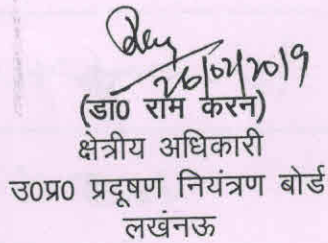 26/02/2019
(डा0 राम करन)
क्षेत्रीय अधिकारी
उ0प्र0 प्रदूषण नियंत्रण बोर्ड
लखनऊ